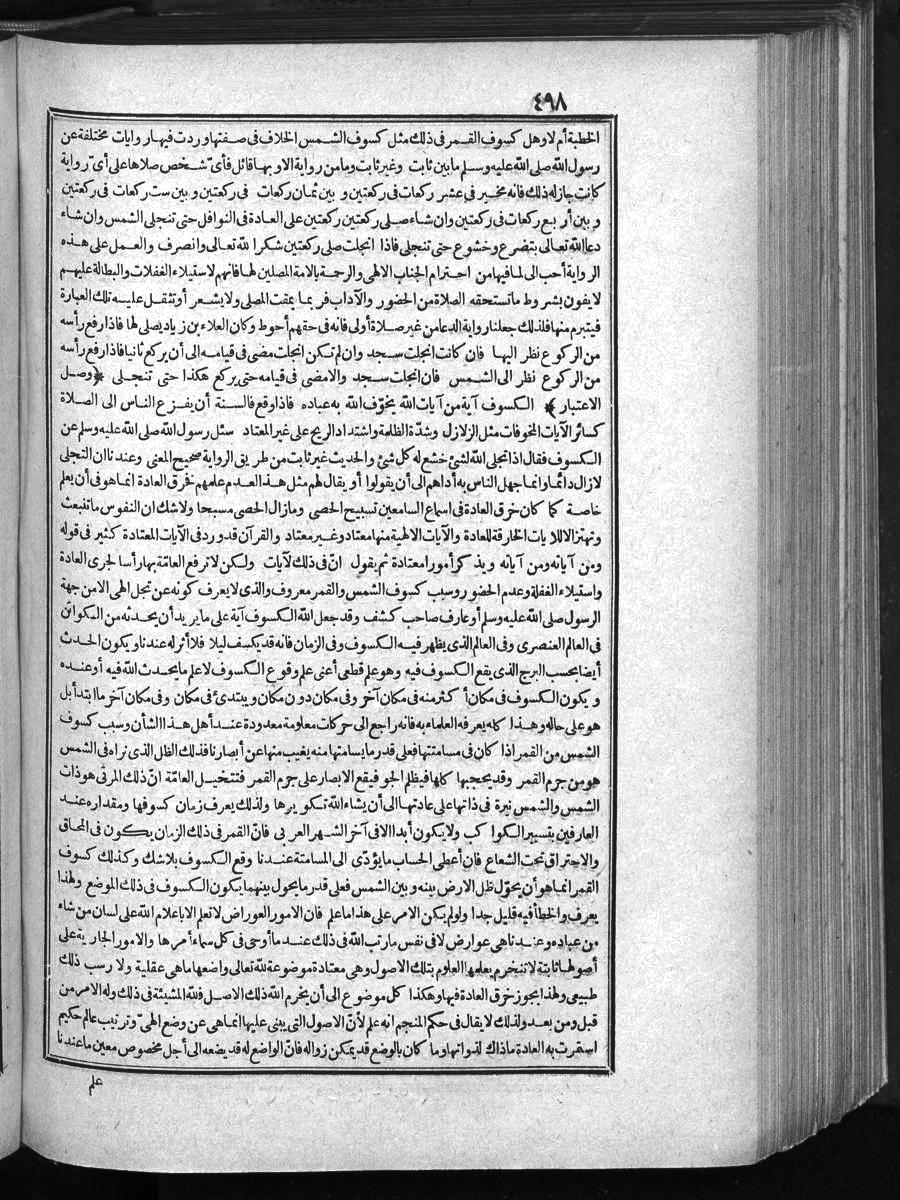 ٤٩٨
الخطبة أم لا وهل كسوف القمر فى ذلك مثل كسوف الشمس الخلاف فى صفتها وردت فيها روايات مختلفة عن
رسول الله صلى الله عليه وسلم مابين ثابت وغير ثابت ومامن رواية الاوبها قائل فأىّ شخص صلاها على أىّ رواية
كانت جازله ذلك فانه مخير فى عشر ركعات فى ركعتين و بين ثمان ركعات فى ركعتين و بين ست ركعات فى ركعتين
و بين أربع ركعات فى ركعتين وان شاء صلى ركعتين ركعتين على العادة فى النوافل حتى تنجلى الشمس وان شاء
دعا الله تعالى بتضرع وخشوع حتى تنجلى فاذا انجلت صلى ركعتين شكرا لله تعالى وانصرف والعمل على هذه
الرواية أحب الى لما فيها من احترام الجناب الالهى والرحمة بالامة المصلين لها فانهم لاستيلاء الغفلات والبطالة عليهم
لا يفون بشروط ماتستحقه الصلاة من الحضور والآداب فربما يمقت المصلى ولا يشعر أوتثقل عليه تلك العبادة
فيتبرم منها فلذلك جعلنا رواية الدعاء من غير صلاة أولى فانه فى حقهم أحوط وكان العلاء بن زياد يصلى لها فاذا رفع رأسه
من الركوع نظر اليها فان كانت انجلت سجد وان لم تكن انجلت مضى فى قيامه الى أن يركع ثانيا فاذا رفع رأسه
من الركوع نظر الى الشمس فان انجلت سجد والامضى فى قيامه حتى يركع هكذا حتى تنجلى ﴿وصل
الاعتبار﴾ الكسوف آية من آيات الله يخوّف الله به عباده فاذا وقع فالسنة أن يفزع الناس الى الصلاة
كسائر الآيات المخوفات مثل الزلازل وشدّة الظلمة واشتداد الريح على غير المعتاد سئل رسول الله صلى الله عليه وسلم عن
الكسوف فقال اذا تجلى الله لشئ خشع له كل شئ والحديث غير ثابت من طريق الرواية صحيح المعنى وعندنا ان التجلى
لازال دائما وانما جهل الناس به أداهم الى أن يقولوا أو يقال لهم مثل هذا لعدم علمهم بخرق العادة انما هو فى أن يعلم
خاصة كما كان خرق العادة فى اسماع السامعين تسبيح الحصى ومازال الحصى مسبحا ولاشك ان النفوس ماتنبعث
وتهتز الا للآيات الخارقة للعادة والآيات الالهية منها معتاد وغير معتاد والقرآن قد ورد فى الآيات المعتادة كثير فى قوله
ومن آياته ومن آياته ويذكر أمورا معتادة ثم يقول انّ فى ذلك لآيات ولكن لا ترفع العامّة بها رأسا لجرى العادة
واستيلاء الغفلة وعدم الحضور وسبب كسوف الشمس والقمر معروف والذى لا يعرف كونه عن تجل الهى الا من جهة
الرسول صلى الله عليه وسلم أو عارف صاحب كشف وقد جعل الله الكسوف آية على مايريد أن يحدثه من الكوائن
فى العالم العنصرى وفى العالم الذى يظهر فيه الكسوف وفى الزمان فانه قد يكسف ليلا فلا أثر له عندنا و يكون الحدث
أيضا بحسب البرج الذى يقع الكسوف فيه وهو علم قطعى أعنى علم وقوع الكسوف لا علم ما يحدث الله فيه أو عنده
و يكون الكسوف فى مكان أكثر منه فى مكان آخر وفى مكان دون مكان ويبتدئ فى مكان وفى مكان آخر ما ابتدأ بل
هو على حاله وهذا كله يعرفه العلماء به فانه راجع الى حركات معلومة معدودة عند أهل هذا الشأن وسبب كسوف
الشمس من القمر اذا كان فى مسامتتها فعلى قدر ما يسامتها منه يغيب منها عن أبصارنا فذلك الظل الذى نراه فى الشمس
هو من جرم القمر وقد يحجبها كلها فيظلم الجو فيقع الابصار على جرم القمر فتتخيل العامّة انّ ذلك المرئى هو ذات
الشمس والشمس نيرة فى ذاتها على عادتها الى أن يشاء الله تكويرها ولذلك يعرف زمان كسوفها ومقداره عند
العارفين بتسيير الكواكب ولا يكون أبدا الا فى آخر الشهر العربى فانّ القمر فى ذلك الزمان يكون فى المحاق
والاحتراق تحت الشعاع فان أعطى الحساب ما يؤدّى الى المسامتة عندنا وقع الكسوف بلاشك وكذلك كسوف
القمر انما هو أن يحوّل ظل الارض بينه و بين الشمس فعلى قدر ما يحول بينهما يكون الكسوف فى ذلك الموضع ولهذا
يعرف والخطأ فيه قليل جدا ولو لم يكن الامر على هذا ما علم فان الامور العوارض لا تعلم الا باعلام الله على لسان من شاء
من عباده وعندنا هى عوارض لا فى نفس ما رتب الله فى ذلك عند ما أوحى فى كل سماء أمرها والامور الجارية على
أصولها ثابتة لا تنخرم يعلمها العلوم بتلك الاصول وهى معتادة موضوعة لله تعالى واضعها ما هى عقلية ولا رسب ذلك
طبيعى ولهذا يجوز خرق العادة فيها وهكذا كل موضوع الى أن يخرم الله ذلك الاصل فلله المشيئة فى ذلك وله الامر من
قبل ومن بعد ولذلك لا يقال فى حكم المنجم انه علم لأنّ الاصول التى يبنى عليها انما هى عن وضع الهىّ وترتيب عالم حكيم
استمرت به العادة ماذاك لذواتها وما كان بالوضع قد يمكن زواله فانّ الواضع له قد يضعه الى أجل مخصوص معين ما عندنا
علم